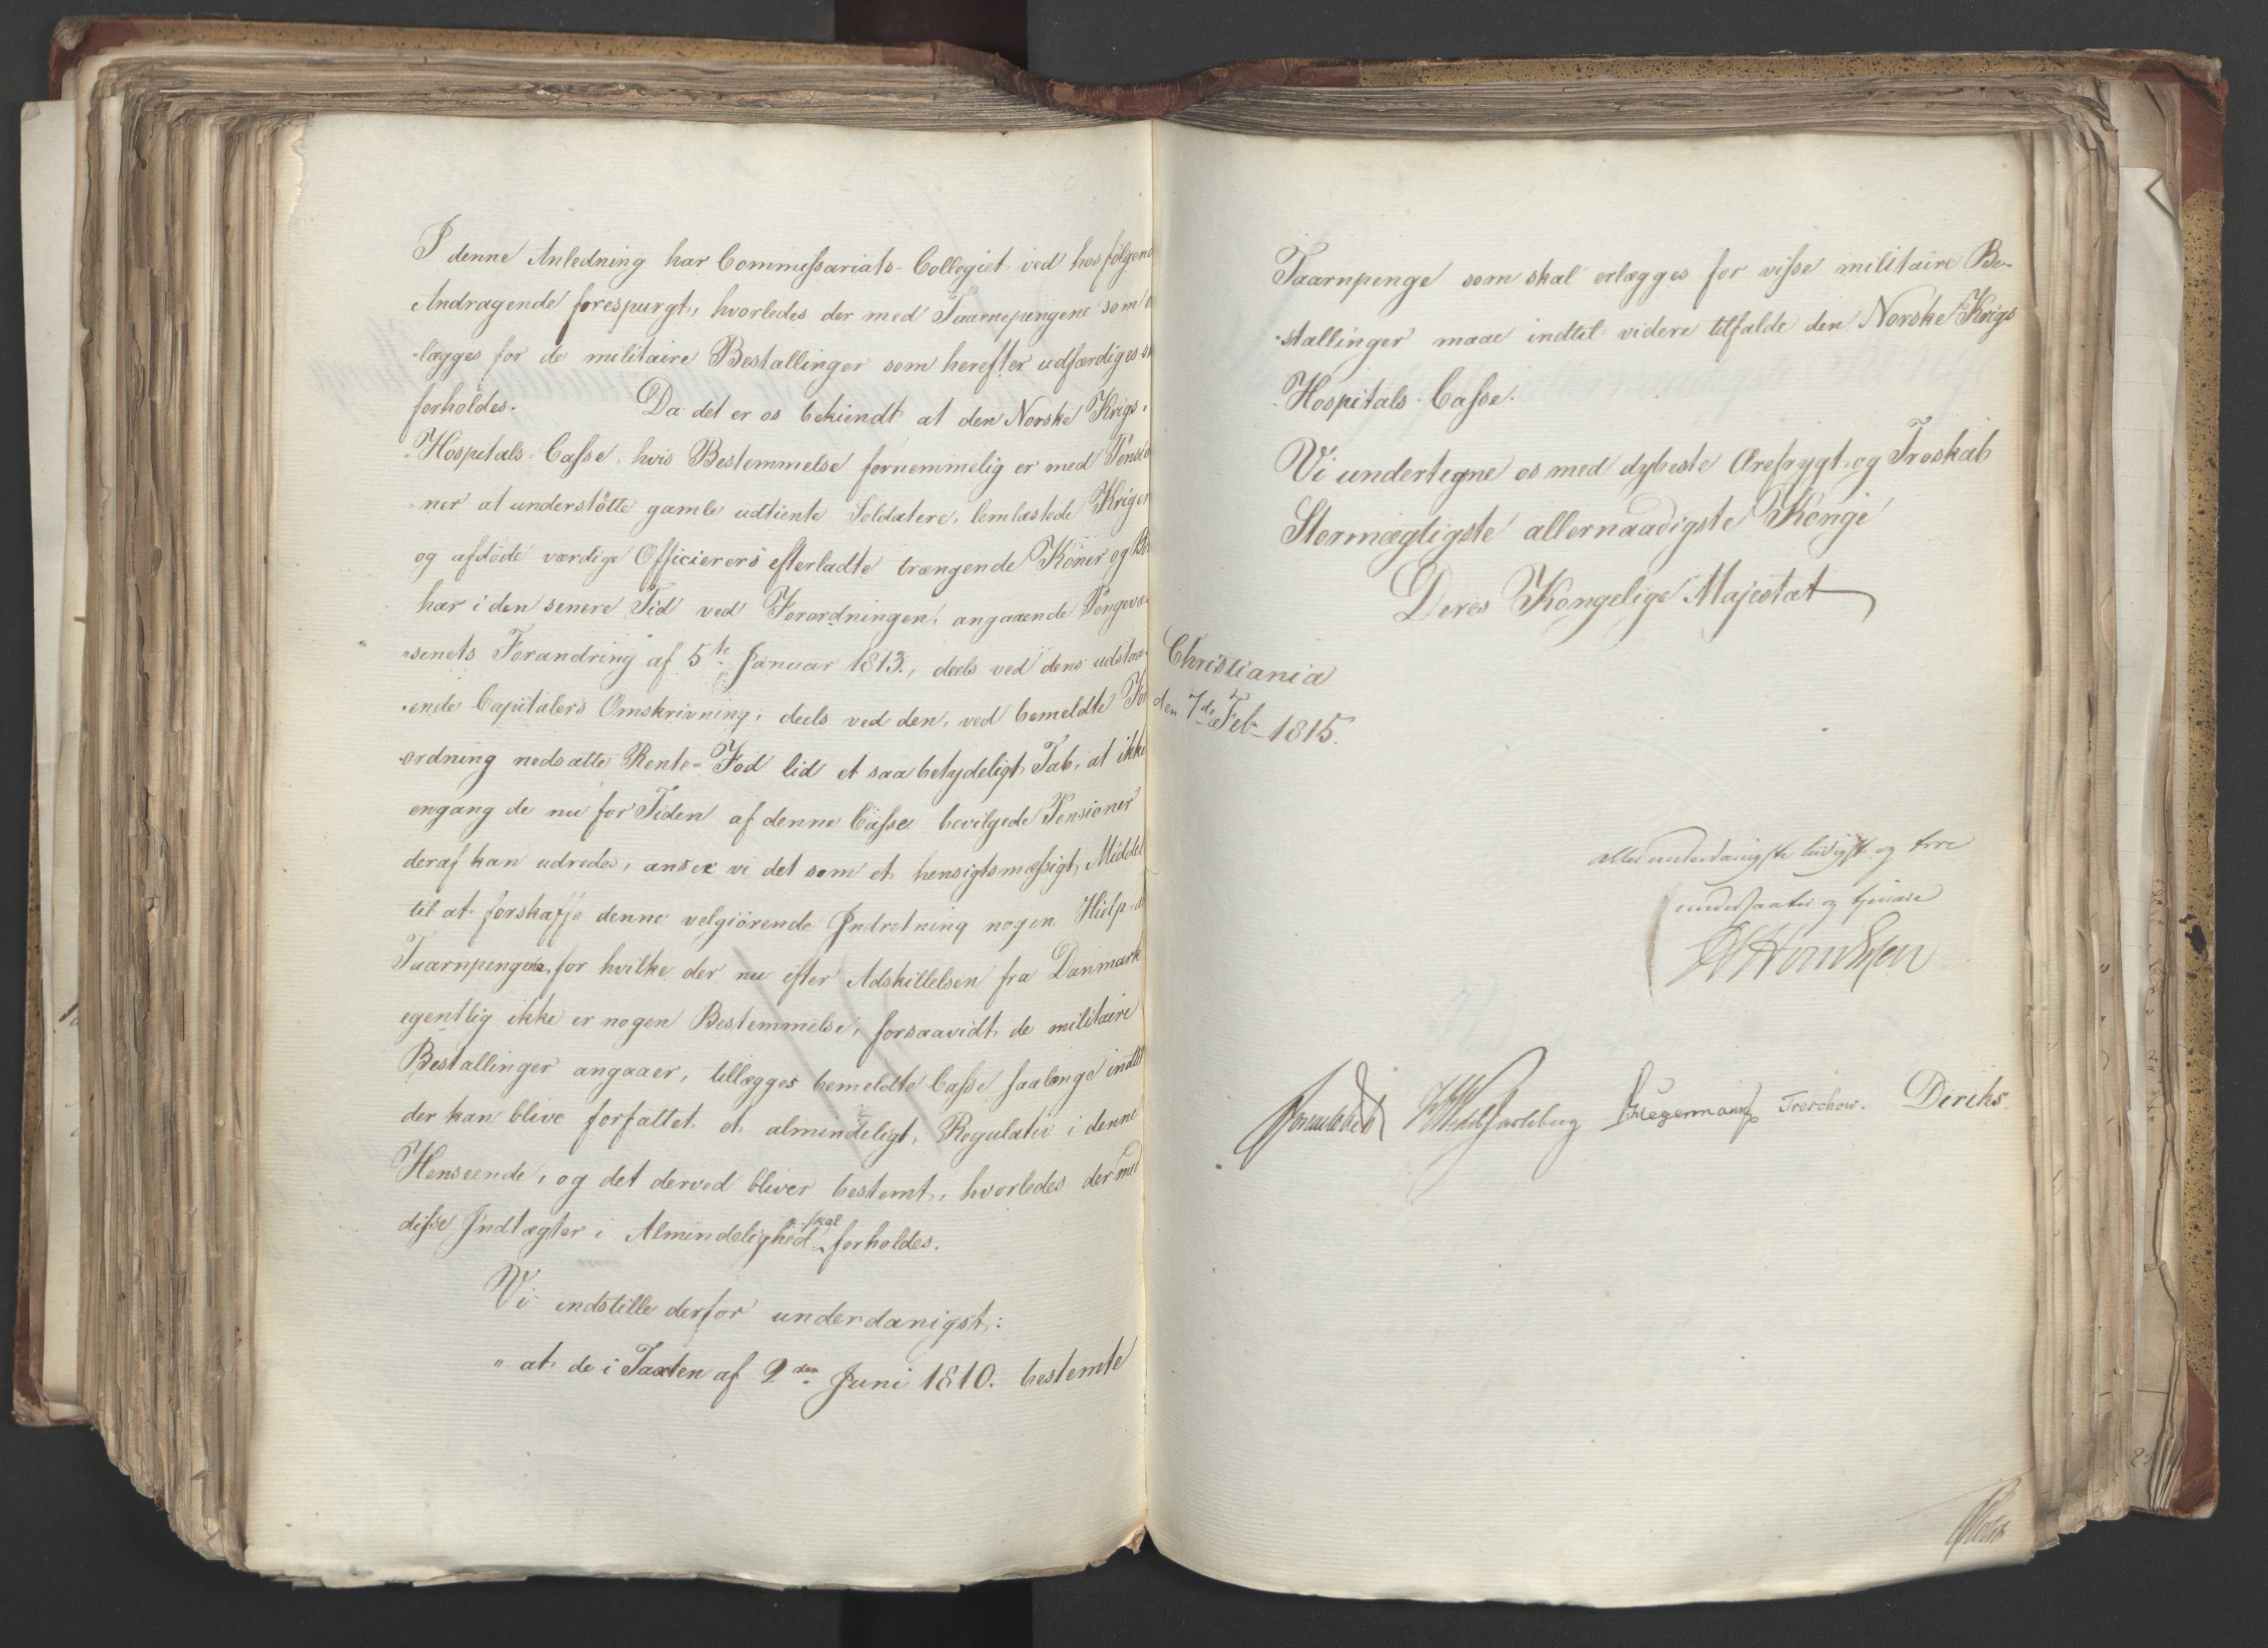 I denne Anledning har Commissariats-Collegiet ved hosfølgend
Andragende forespurgt, hvorledes der med Taarnepengene som
-lægges for de militaire Bestallinger som herefter udfærdiges
forholdes. Da det er os bekiendt at den Norske Krigs-
-Hospitals-Casse, hvis Bestemmelse fornemmelig er med Pensio
ner at understøtte gamle udtiente Soldatere, lemlæstede Kriger
og afdøde værdige Officierers efterladte trængende Koner og
har i den senere Tid ved Forordningen, angaaende Pengevæ-
-senets Forandring af 5te Januar 1813., deels ved dens udstaa-
-ende Capitalers Omskrivning, deels ved den, ved bemeldte For
-ordning nedsatte Rente-Fod lid et saa betydeligt Tab, at ikke
engang de nu for Tiden af denne Casse bevilgede Pensioner
deraf kan udredes, ansee vi det som et hensigtsmæssigt Middel
til at forskaffe denne velgiørende Indretning nogen Hielp, at
Taarnpengene, for hvilke der nu efter Adskillelsen fra Danmark
egentlig ikke er nogen Bestemmelse, forsaavidt de militaire
Bestallinger angaaer, tillægges bemeldte Casse saalænge indtil
der kan blive forfattet et almindeligt Regulativ i denne
Henseende, og det derved bliver bestemt, hvorledes der med
disse Indtægter i Almindelighed skal forholdes.
Vi indstille derfor underdanigst:
" at de i Taxten af 2den Juni 1810. bestemte
Taarnpenge som skal erlægges for visse militaire Be-
-stallinger maae indtil videre tilfalde den Norske Krigs
-Hospitals-Casse.
Vi undertegne os med dybeste Ærefrygt og Troskab
Stormægtigste allernaadigste Konge
Deres Kongelige Majestæt
Christiania
den 7de Feb 1815.
allerunderdanigste lydigste og troe
undersaatter og tjenere
Sommerhielm HWedelJarlsberg DHegermann Treschow. Diriks.